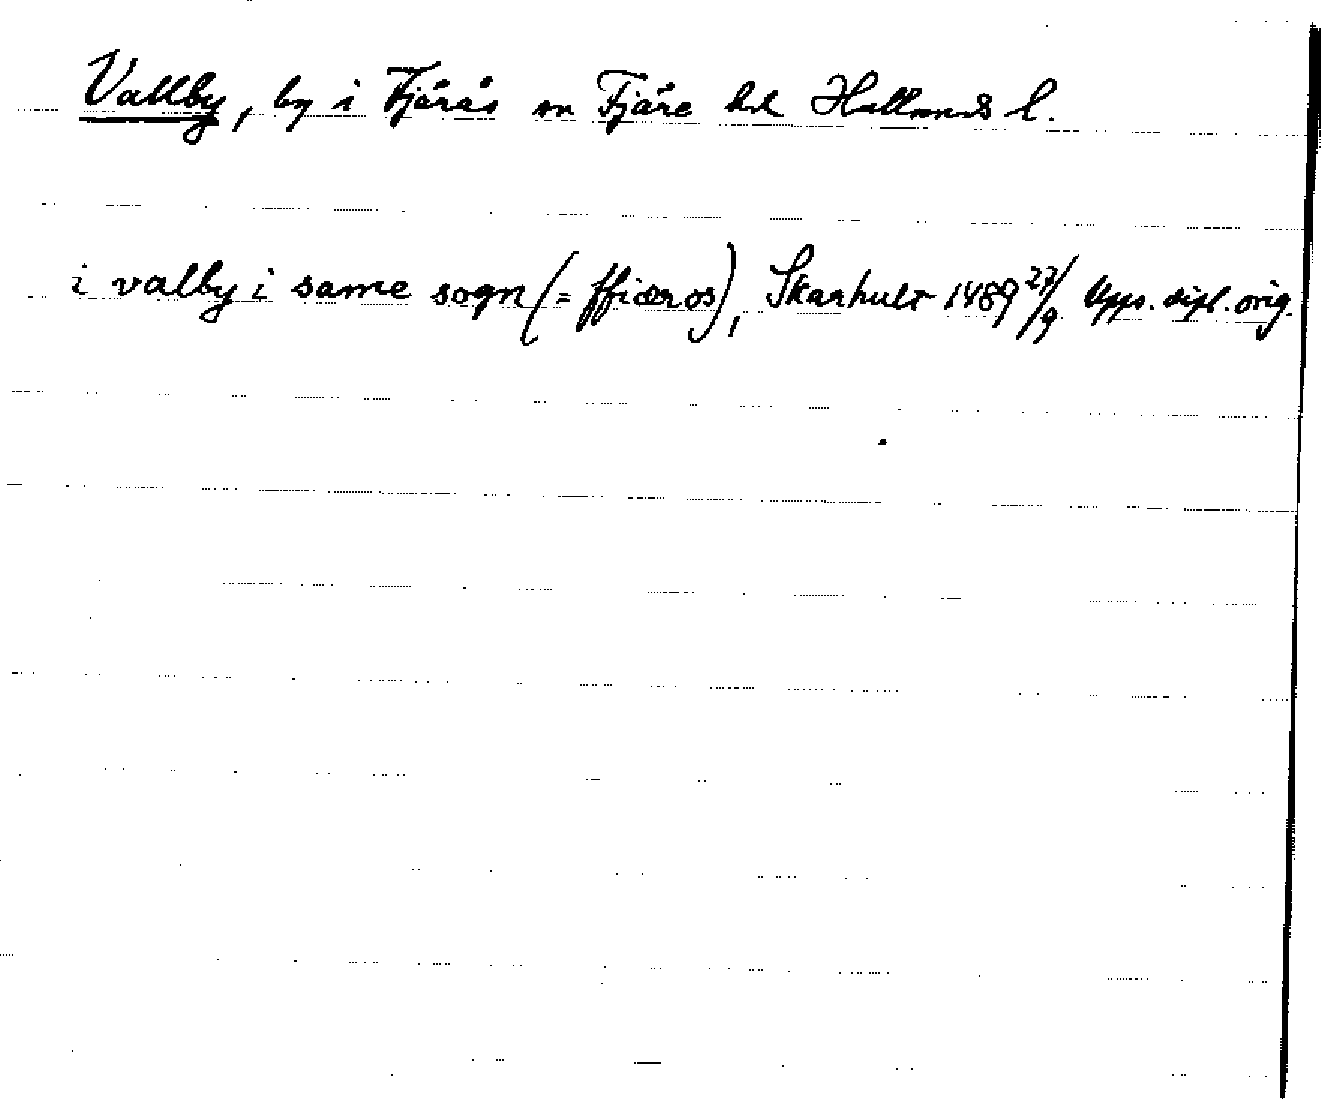 Vallby, by i Fjärås sn Fjäre hd Hallands l.
i valby i same sogn (= ffiæros), Skarhult 1489 27/9 Upps. dipl. orig.